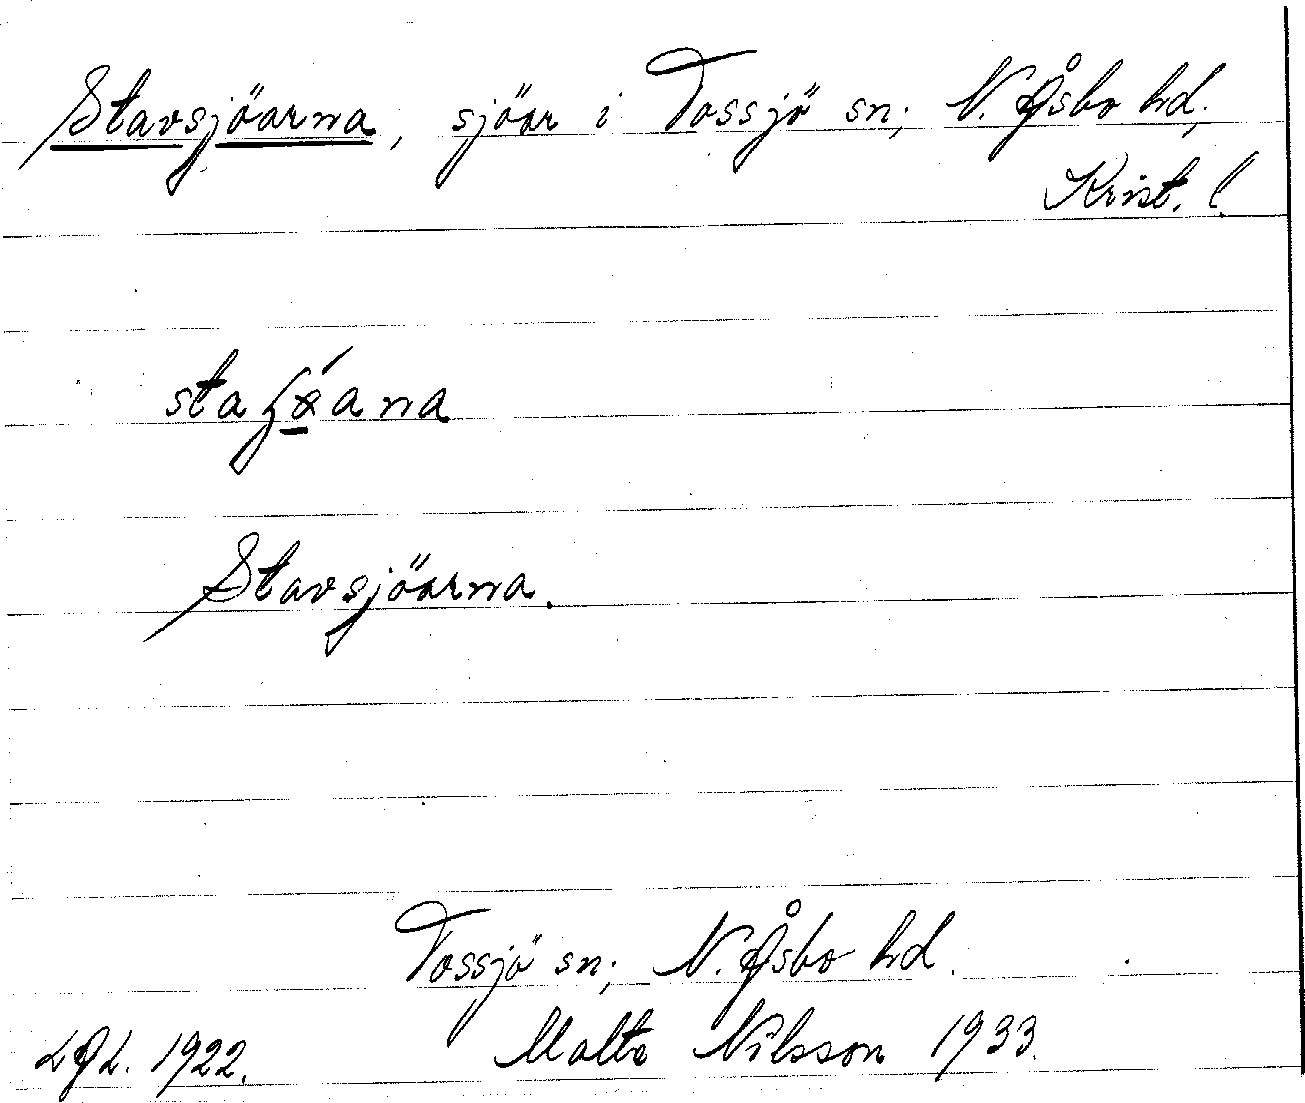 Stavsjöarna, sjöar i Tossjö sn; N. Åsbo hd,
Krist. l.
Stavsjöarna.
Tossjö sn; N. Åsbo hd.
1922.
Malte Nilsson 1933.